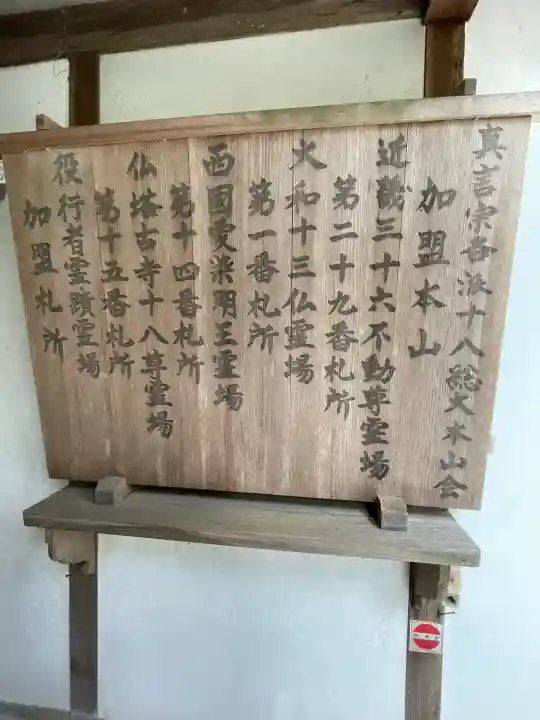 真言宗各派十八総大本山会
加盟本山
近畿三十六不動尊霊場
第二十九番札所
大和十三仏霊場
第一番札所
西国愛染明王霊場
第十四番札所
仏塔古寺十八尊霊場
第十五番札所
役行者霊蹟霊場
加盟札所